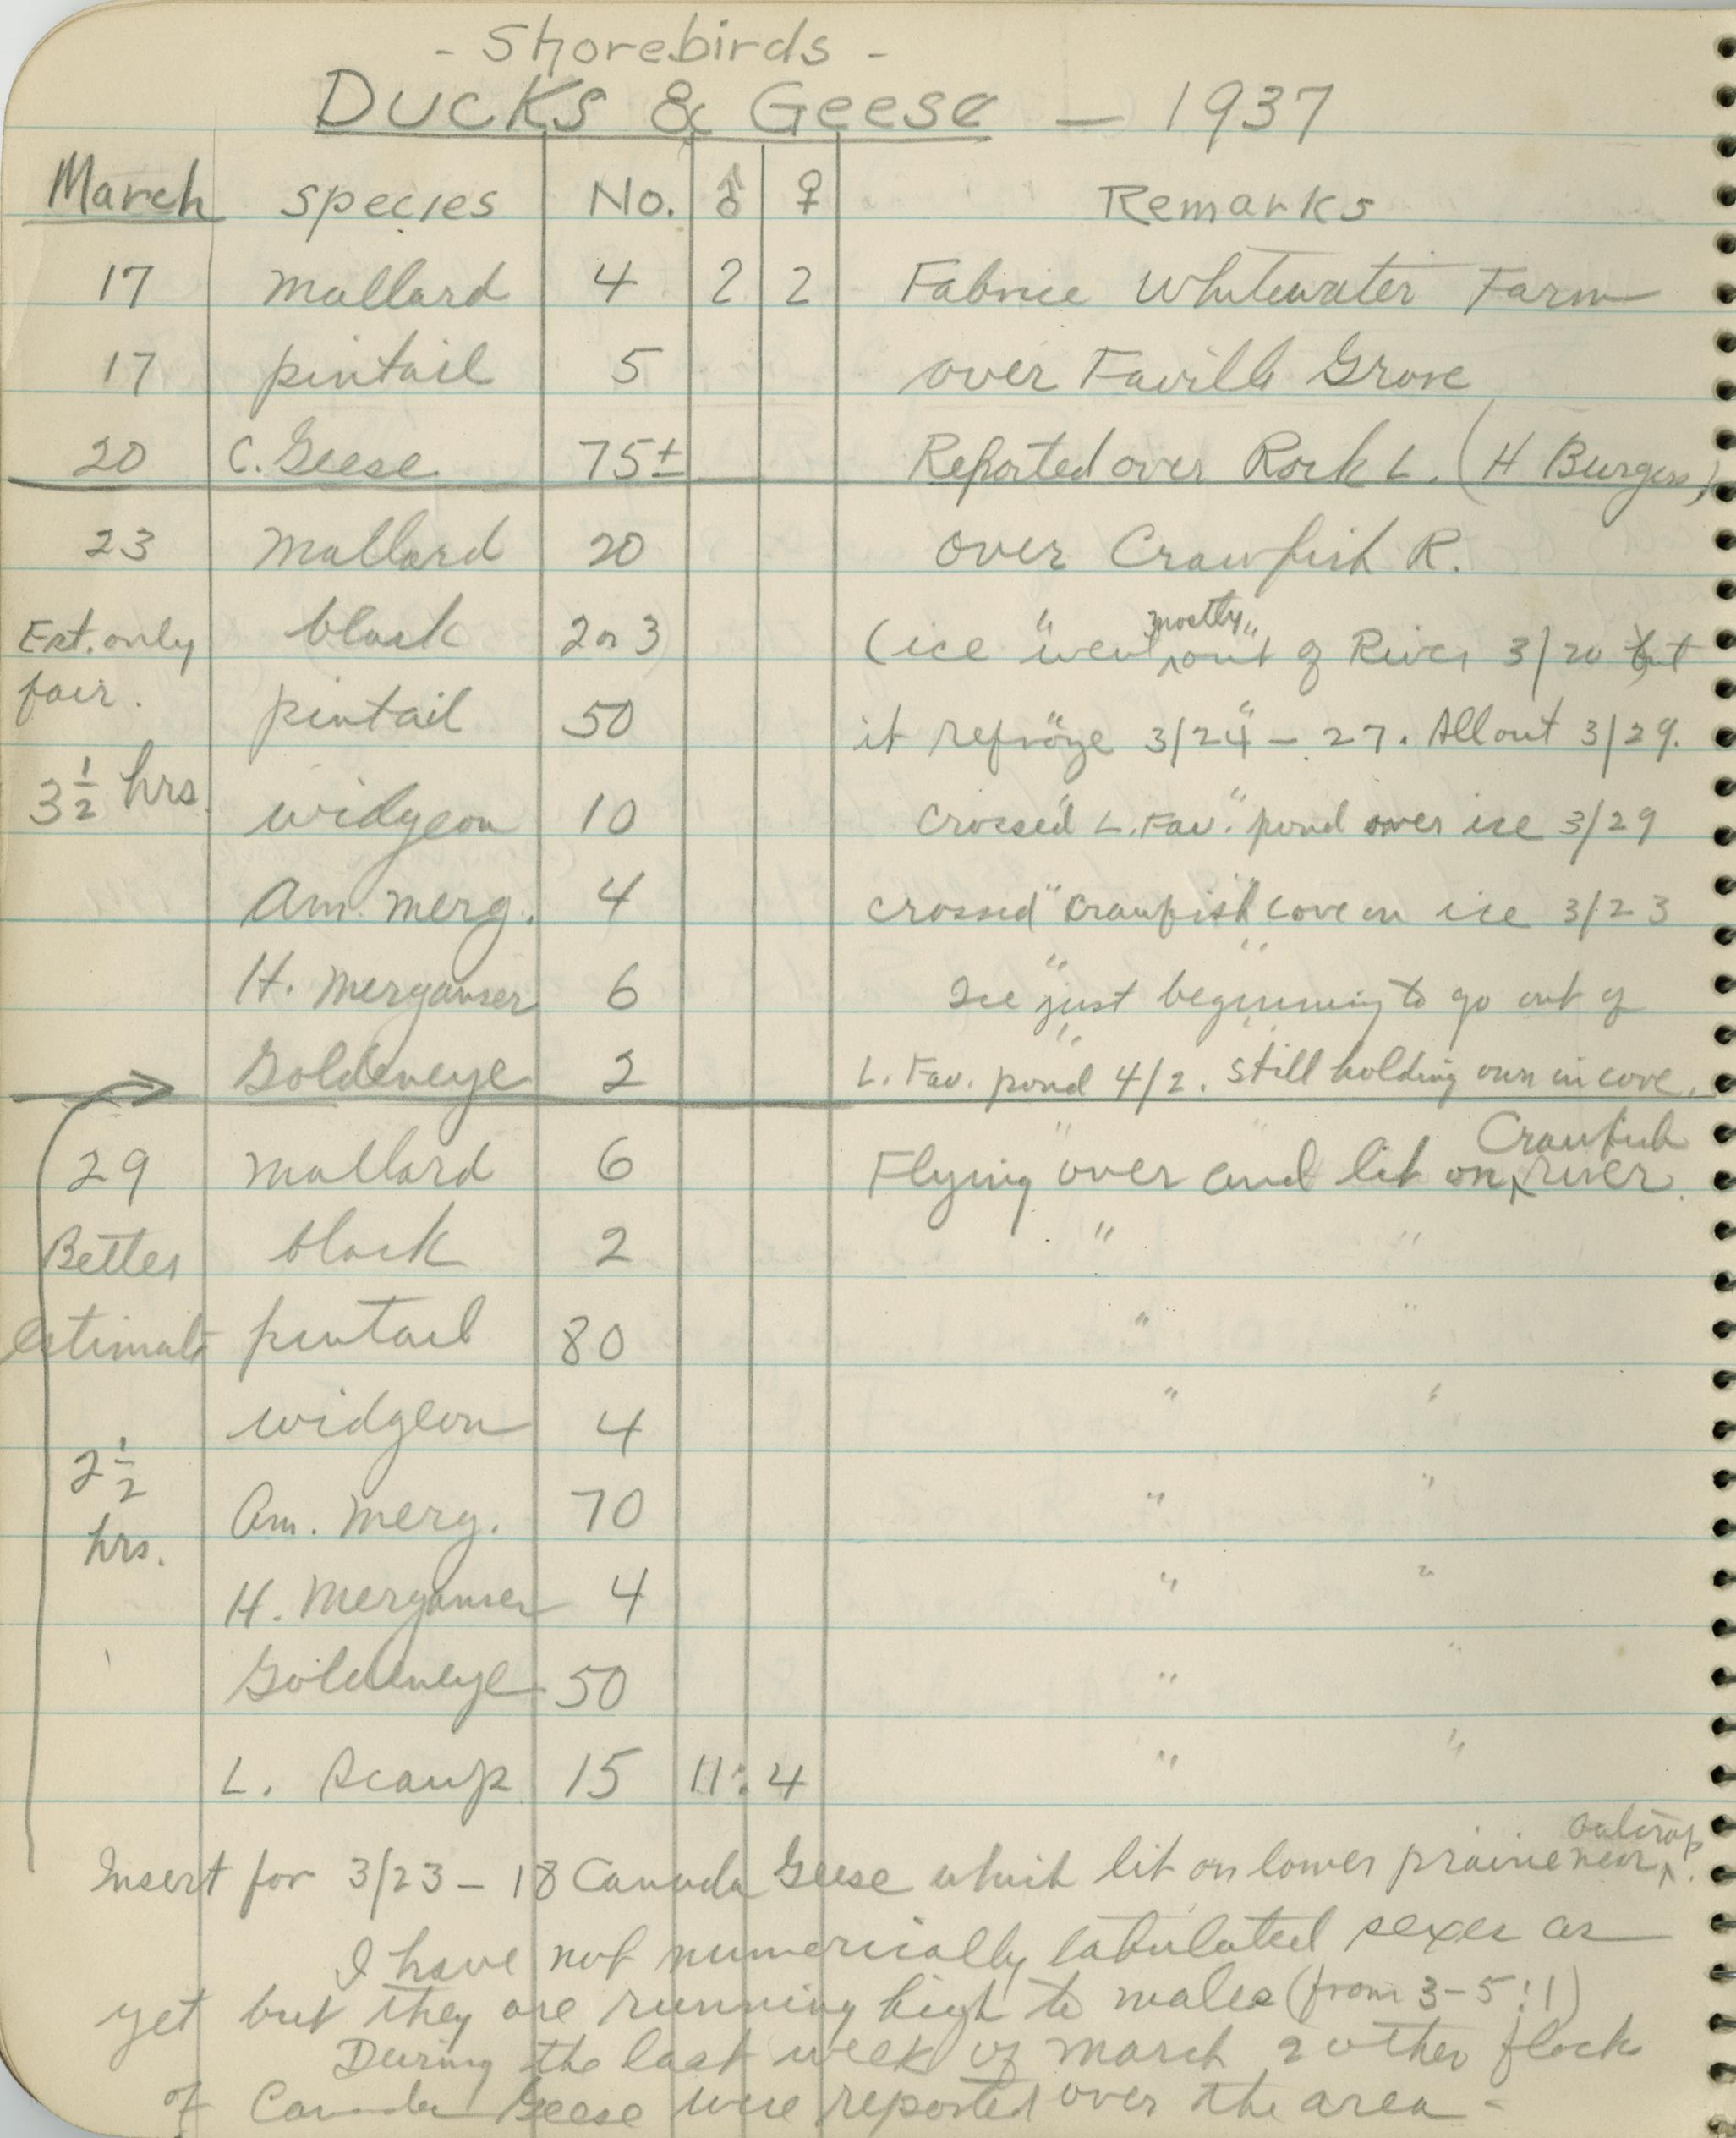 - Shorebirds -
Ducks & Geese — 1937
March species No. ♂ ♀ Remarks
17 mallard 4 2 2 Whitewater Farm
17 pintail 5 over Faville Grove
20 C. Geese 75± Reported over Rock L. (H Burgess)
23 mallard 20 over Crawfish R.
Est. only black 2 or 3 (ice "went mostly out of River 3/20 but
fair. pintail 50 it refroze 3/24 - 27. All out 3/29.
3 1/2 hrs. widgeon 10 Crossed L. Fav. pond over ice 3/29
Am. merg. 4 crossed Crawfish cove on ice 3/23
H. merganser 6 Ice just beginning to go out of
Goldeneye 2 L. Fav. pond 4/2. Still holding own in cove.
29 mallard 6 Flying over and lit on Crawfish river.
Better black 2 " "
estimate pintail 80 " "
widgeon 4 " "
2 1/2 Am. merg. 70 " "
hrs. H. Merganser 4 " "
Goldeneye 50 " "
L. Scaup 15 11 : 4 " "
Insert for 3/23 - 18 Canada Geese which lit on lower prairie near outcrop.
I have not numerically tabulated sexes as
yet but they are running high to males (from 3-5:1)
During the last week of march 2 other flock
of Canada Geese were reported over the area -